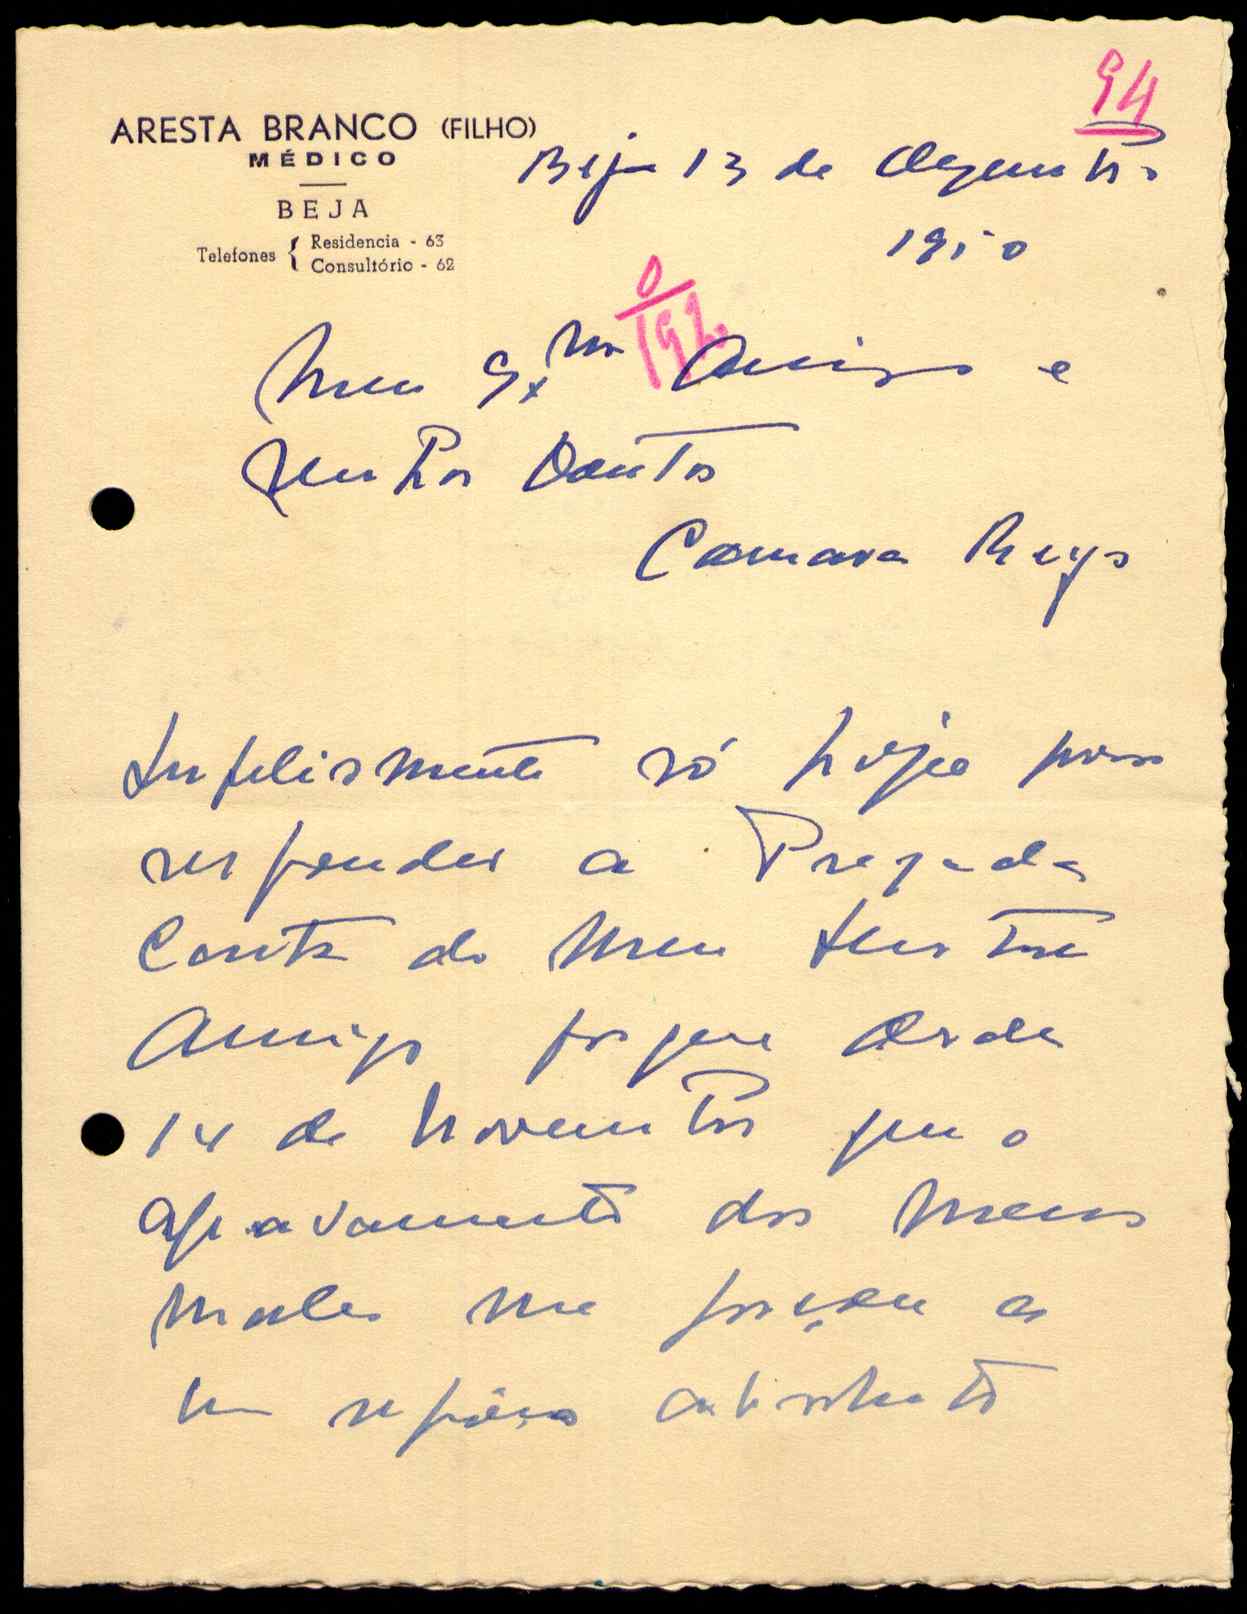 94
ARESTA BRANCO (FILHO)
MÉDICO
BEJA
Telefones { Residencia - 63
Consultório - 62
Beja 13 de Dezembro
1950
0/192
Meu Exmo Amigo e
Senhor Doutor
Camara Reys
Infelismente só hoje posso
responder a Prezada
Carta do meu Ilustre
Amigo porque desde
14 de Novembro que o
agravamento dos meus
males me forçou a
um repouso absoluto